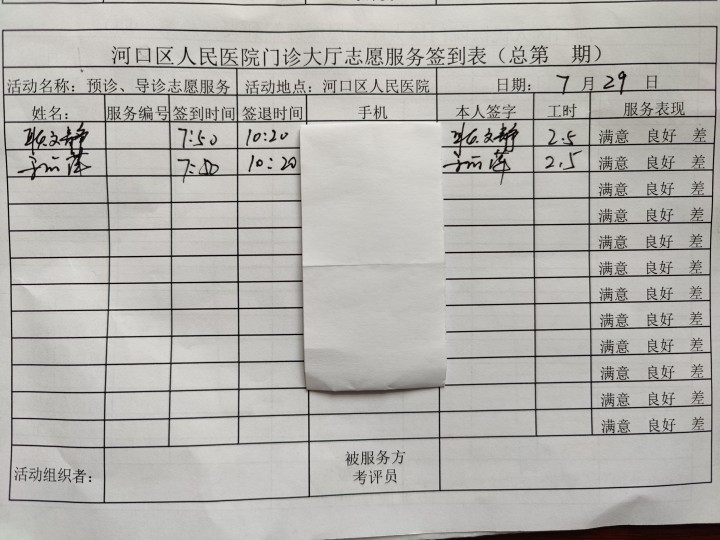 河口区人民医院门诊大厅志愿服务签到表（总第 期）
活动名称：预诊、导诊志愿服务 活动地点：河口区人民医院 日期：7月29日
姓名： 服务编号 签到时间 签退时间 手机 本人签字 工时 服务表现
耿文静 7:50 10:20 耿文静 2.5 满意 良好 差
7:50 10:20 2.5 满意 良好 差
满意 良好 差
满意 良好 差
满意 良好 差
满意 良好 差
满意 良好 差
满意 良好 差
满意 良好 差
满意 良好 差
满意 良好 差
满意 良好 差
活动组织者： 被服务方
考评员